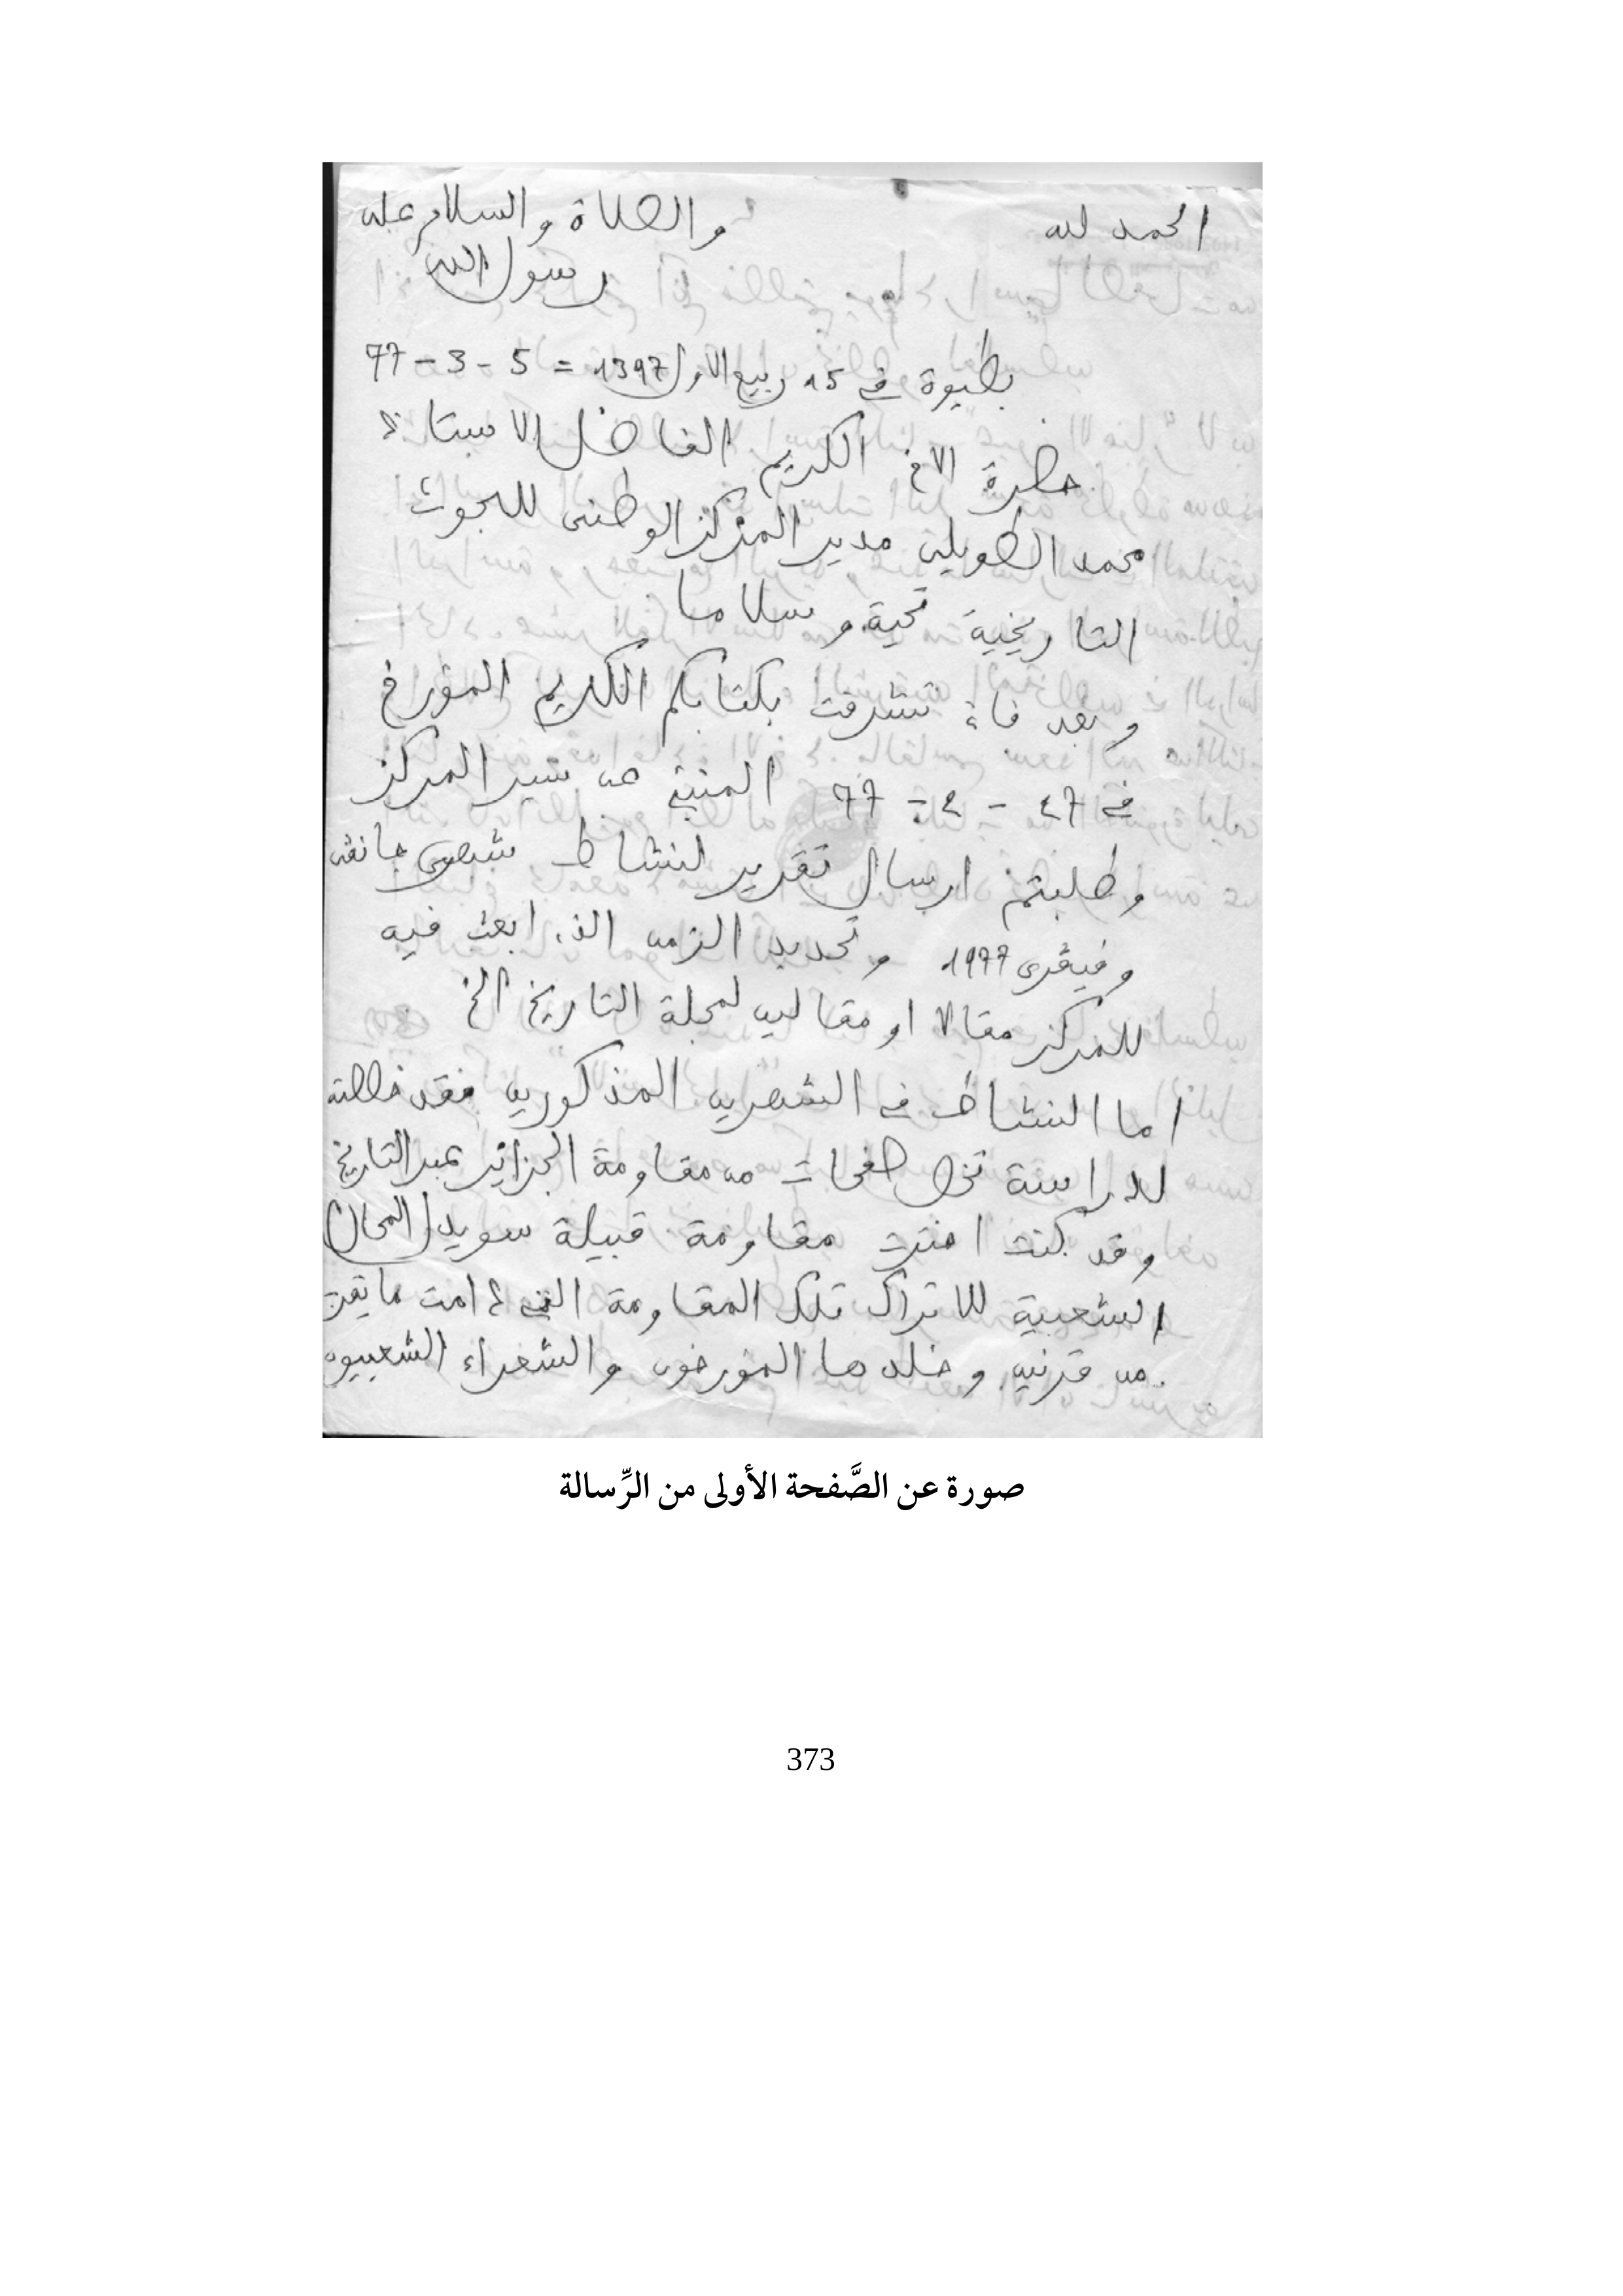 الحمد لله والصلاة والسلام على
رسول الله
بطيوة في 15 ربيع الاول 1397 = 5 - 3 - 77
حضرة الاخ الكريم الفاضل الاستاذ
محمد الطويلي مدير المركز الوطني للبحوث
التاريخية تحية وسلاما
وبعد فاني تشرفت بكتابكم الكريم المؤرخ
في 27 - 2 - 77 المنبئ عن سير المركز
وطلبتم ارسال تقرير لنشاط شهري جانفي
وفيفري 1977 وتحديد الزمن الذي ابعث فيه
للمركز مقالا او مقالين لمجلة التاريخ الخ
اما النشاط في الشهرين المذكورين فقد خصصته
لدراسة تخص صفحات من مقاومة الجزائر عبر التاريخ
وقد كنت اخترت مقاومة قبيلة سويد المحال
الشعبية للاتراك تلك المقاومة التي دامت ما يقرب
من قرنين وخلدها المؤرخون والشعراء الشعبيون
صورة عن الصَّفحة الأولى من الرِّسالة
373